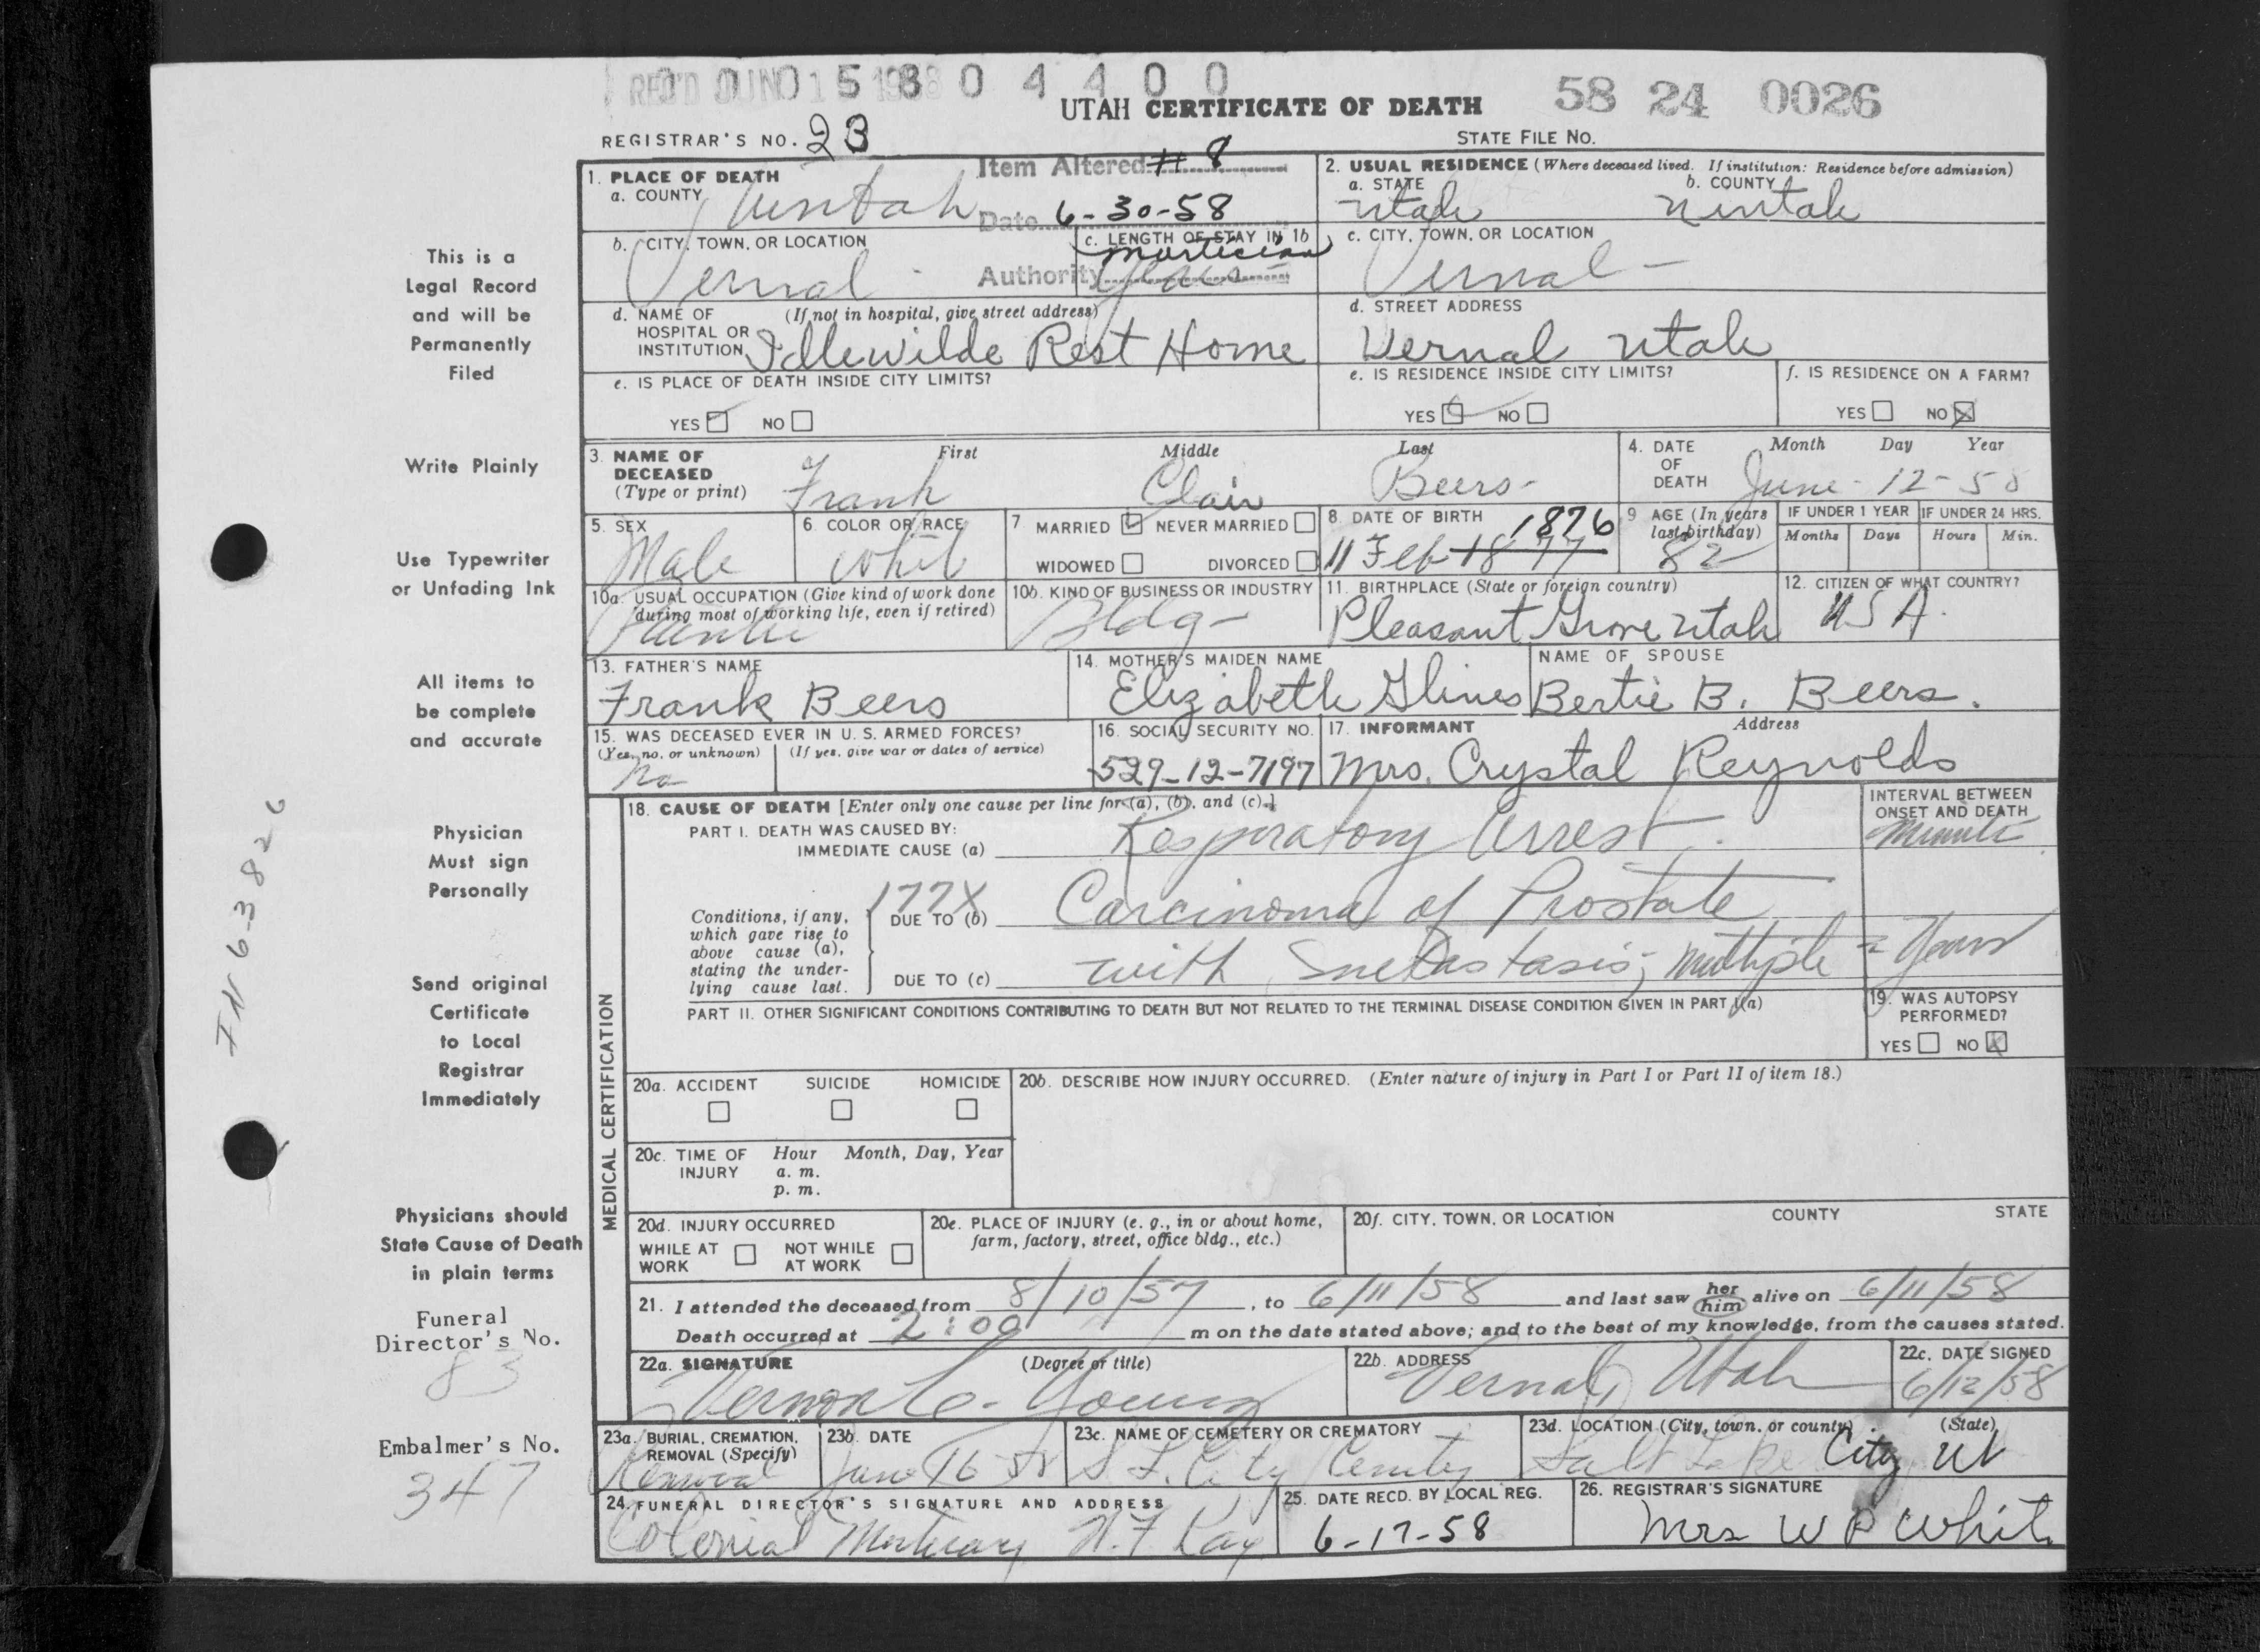 REC'D JUN 15 1958 0 4 4 0 0
58 24 0026
UTAH CERTIFICATE OF DEATH
REGISTRAR'S NO. 23
STATE FILE NO.
Item Altered # 8
Date 6-30-58
Authority Mortician
1. PLACE OF DEATH
a. COUNTY Uintah
2. USUAL RESIDENCE (Where deceased lived. If institution: Residence before admission)
a. STATE Utah
b. COUNTY Uintah
b. CITY, TOWN, OR LOCATION Vernal
c. LENGTH OF STAY IN 1b Years
c. CITY, TOWN, OR LOCATION Vernal
d. NAME OF HOSPITAL OR INSTITUTION (If not in hospital, give street address) Idlewilde Rest Home
d. STREET ADDRESS Vernal Utah
e. IS PLACE OF DEATH INSIDE CITY LIMITS? YES NO
e. IS RESIDENCE INSIDE CITY LIMITS? YES NO
f. IS RESIDENCE ON A FARM? YES NO
3. NAME OF DECEASED (Type or print) First Middle Last
Frank Clair Beers
4. DATE OF DEATH Month Day Year
June-12-58
5. SEX Male
6. COLOR OR RACE White
7 MARRIED NEVER MARRIED
WIDOWED DIVORCED
8 DATE OF BIRTH 1876
11 Feb 1877
9 AGE (In years last birthday) 82
IF UNDER 1 YEAR IF UNDER 24 HRS.
Months Days Hours Min.
10a. USUAL OCCUPATION (Give kind of work done during most of working life, even if retired)
10b. KIND OF BUSINESS OR INDUSTRY Bldg-
11. BIRTHPLACE (State or foreign country) Pleasant Grove Utah
12. CITIZEN OF WHAT COUNTRY? USA.
13. FATHER'S NAME Frank Beers
14. MOTHER'S MAIDEN NAME Elizabeth Glines
NAME OF SPOUSE Bertie B. Beers.
15. WAS DECEASED EVER IN U. S. ARMED FORCES?
(Yes, no, or unknown) (If yes, give war or dates of service)
No
16. SOCIAL SECURITY NO. 529-12-7197
17. INFORMANT Address
Mrs. Crystal Reynolds
MEDICAL CERTIFICATION
18. CAUSE OF DEATH [Enter only one cause per line for (a), (b), and (c).]
INTERVAL BETWEEN ONSET AND DEATH
PART I. DEATH WAS CAUSED BY:
IMMEDIATE CAUSE (a) Respiratory Arrest.
177X
Conditions, if any, which gave rise to above cause (a), stating the underlying cause last.
DUE TO (b) Carcinoma of Prostate
DUE TO (c) with metastasis; multiple
Years
PART II. OTHER SIGNIFICANT CONDITIONS CONTRIBUTING TO DEATH BUT NOT RELATED TO THE TERMINAL DISEASE CONDITION GIVEN IN PART I(a)
19. WAS AUTOPSY PERFORMED?
YES NO
20a. ACCIDENT SUICIDE HOMICIDE
20b. DESCRIBE HOW INJURY OCCURRED. (Enter nature of injury in Part I or Part II of item 18.)
20c. TIME OF INJURY Hour Month, Day, Year
a. m.
p. m.
20d. INJURY OCCURRED
WHILE AT WORK NOT WHILE AT WORK
20e. PLACE OF INJURY (e. g., in or about home, farm, factory, street, office bldg., etc.)
20f. CITY, TOWN, OR LOCATION COUNTY STATE
21. I attended the deceased from 8/10/57, to 6/11/58 and last saw her him alive on 6/11/58
Death occurred at 2:00 m on the date stated above; and to the best of my knowledge, from the causes stated.
22a. SIGNATURE (Degree or title)
Vernon C. Young
22b. ADDRESS Vernal, Utah
22c. DATE SIGNED 6/12/58
23a. BURIAL, CREMATION, REMOVAL (Specify) Removal
23b. DATE June 16 58
23c. NAME OF CEMETERY OR CREMATORY S L City Cemetery
23d. LOCATION (City, town, or county) (State)
Salt Lake City Ut
24. FUNERAL DIRECTOR'S SIGNATURE AND ADDRESS
Colonial Mortuary
25. DATE RECD. BY LOCAL REG. 6-17-58
26. REGISTRAR'S SIGNATURE
Mrs W P White
This is a
Legal Record
and will be
Permanently
Filed
Write Plainly
Use Typewriter
or Unfading Ink
All items to
be complete
and accurate
Physician
Must sign
Personally
Send original
Certificate
to Local
Registrar
Immediately
Physicians should
State Cause of Death
in plain terms
Funeral
Director's No.
83
Embalmer's No.
347